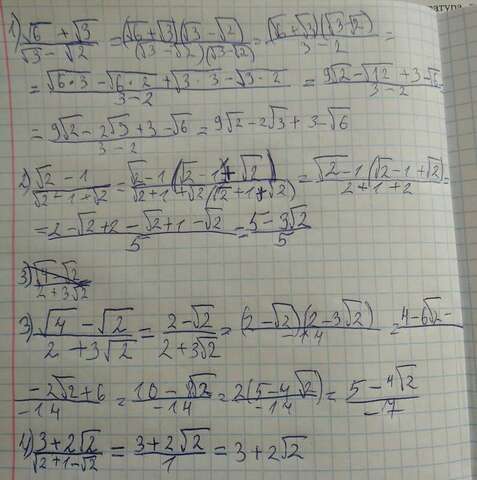 1) (√6 + √3)/(√3 − √2) = (√6 + √3)(√3 − √2)/(√3 − √2)(√3−√2) = (√6 + √3)(√3−√2)/(3 − 2) =
= (√6·3 − √6·2 + √3·3 − √3·2)/(3−2) = (9√2 − √12 + 3 − √6)/(3−2)
= (9√2 − 2√3 + 3 − √6)/(3−2) = 9√2 − 2√3 + 3 − √6
2) (√2 − 1)/(√2 − 1 − √2) = √2 − 1(√2 − 1 + √2)/√2 + 1 + √2(√2 + 1 + √2) = √2 − 1(√2 − 1 + √2)/(2 + 1 + 2) =
= (2 − √2 + 2 − √2 + 1 − √2)/5 = (5 − 3√2)/5
3) (√4 − √2)/(2 + 3√2)
3) (√4 − √2)/(2 + 3√2) = (2 − √2)/(2 + 3√2) = (2 − √2)(2 − 3√2)/−14 = (4 − 6√2 −
(− 2√2 + 6)/−14 = (10 − 8√2)/−14 = 2(5 − 4√2)/−14 = (5 − 4√2)/−17
4) (3 + 2√2)/(√2 + 1 − √2) = (3 + 2√2)/1 = 3 + 2√2